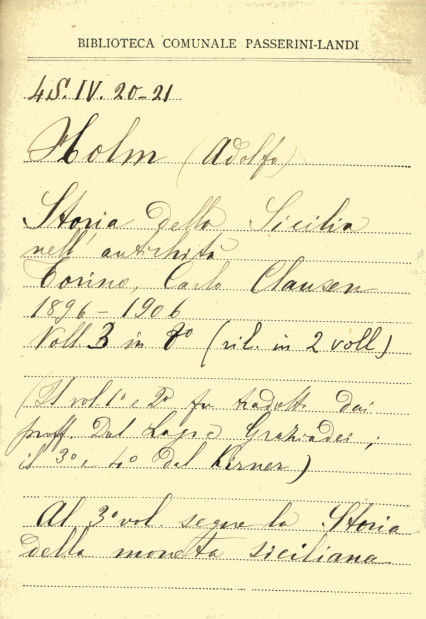 BIBLIOTECA COMUNALE PASSERINI-LANDI
4S. IV. 20-21
Holm (Adolfo)
Storia della Sicilia
nell'antichità
Torino, Carlo Clausen
1896-1906
Voll. 3 in 8° (ril. in 2 voll.)
(Il vol. 1° e 2° fu tradotto dai
proff. Dal Lago e Graziadei;
il 3° e 4° dal Kirner)
Al 3° vol. segue la Storia
della moneta siciliana